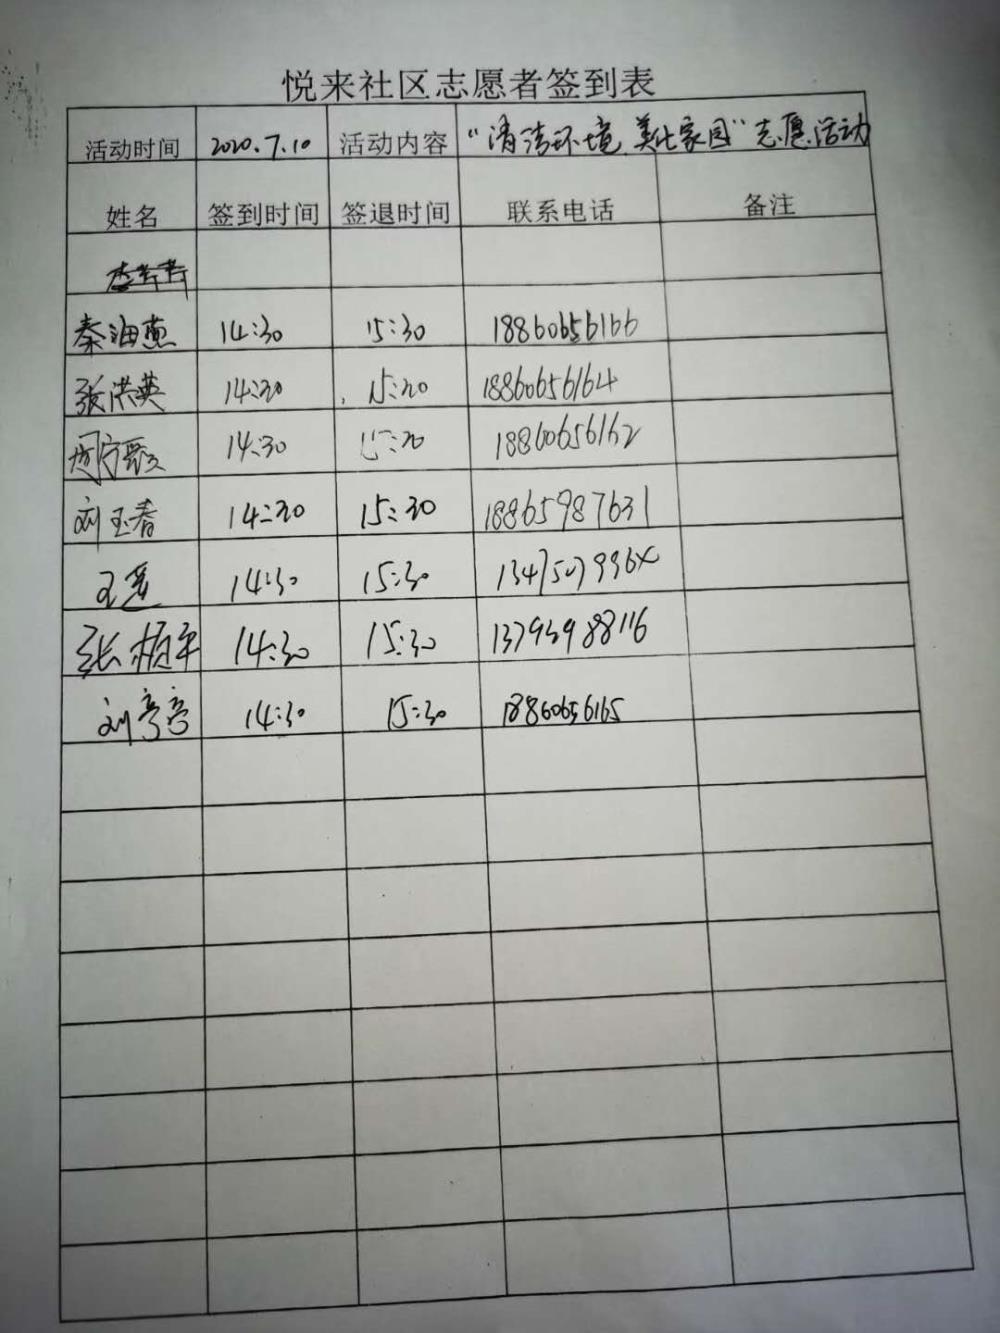 悦来社区志愿者签到表
活动时间 2020.7.10 活动内容 "清洁环境 美化家园"志愿活动
姓名 签到时间 签退时间 联系电话 备注
秦海燕 14:30 15:30 18860656166
张洪英 14:30 15:30 18860656164
周宁 14:30 15:30 18860656162
刘玉春 14:30 15:30 18865987631
王 14:30 15:30
张桢平 14:30 15:30 13793988116
刘亭亭 14:30 15:30 18860656165